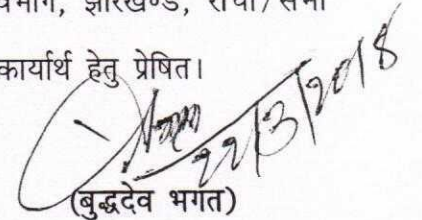 विभाग, झारखण्ड, राँची/सभी
कार्यार्थ हेतु प्रेषित।
22/3/2018
(बुद्धदेव भगत)